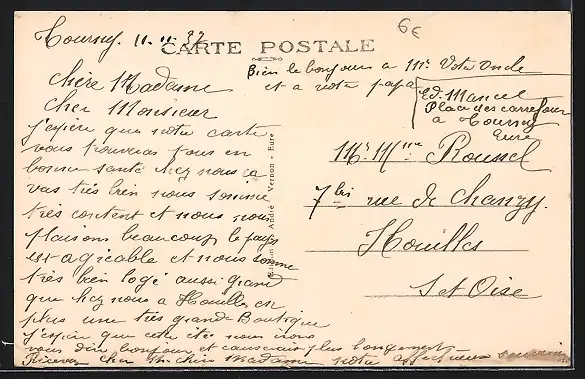 Tourny. 11.11.37
CARTE POSTALE
6€
Bien le bonjour a Mr Votre Oncle
et a votre papa
Ed. Marcel
Place des carrefour
a Tourny
Eure
Chère Madame
Cher Monsieur
j'espère que notre carte
vous trouveras tous en
bonne santé chez nous ça
vas très bien nous somme
très content et nous nous
plaisons beaucoup le pays
est agréable et nous somme
très bien logé aussi grand
que chez nous a Houilles en
plus une très grande Boutique
j'espère que cete été nous irons
vous dire bonjour et causerait plus longement
Recevez cher Mr chère Madame notre affectueux souvenir
Mr. Mme Roussel
7 bis rue de Chanzy.
Houilles
S et Oise
André Vernon - Eure